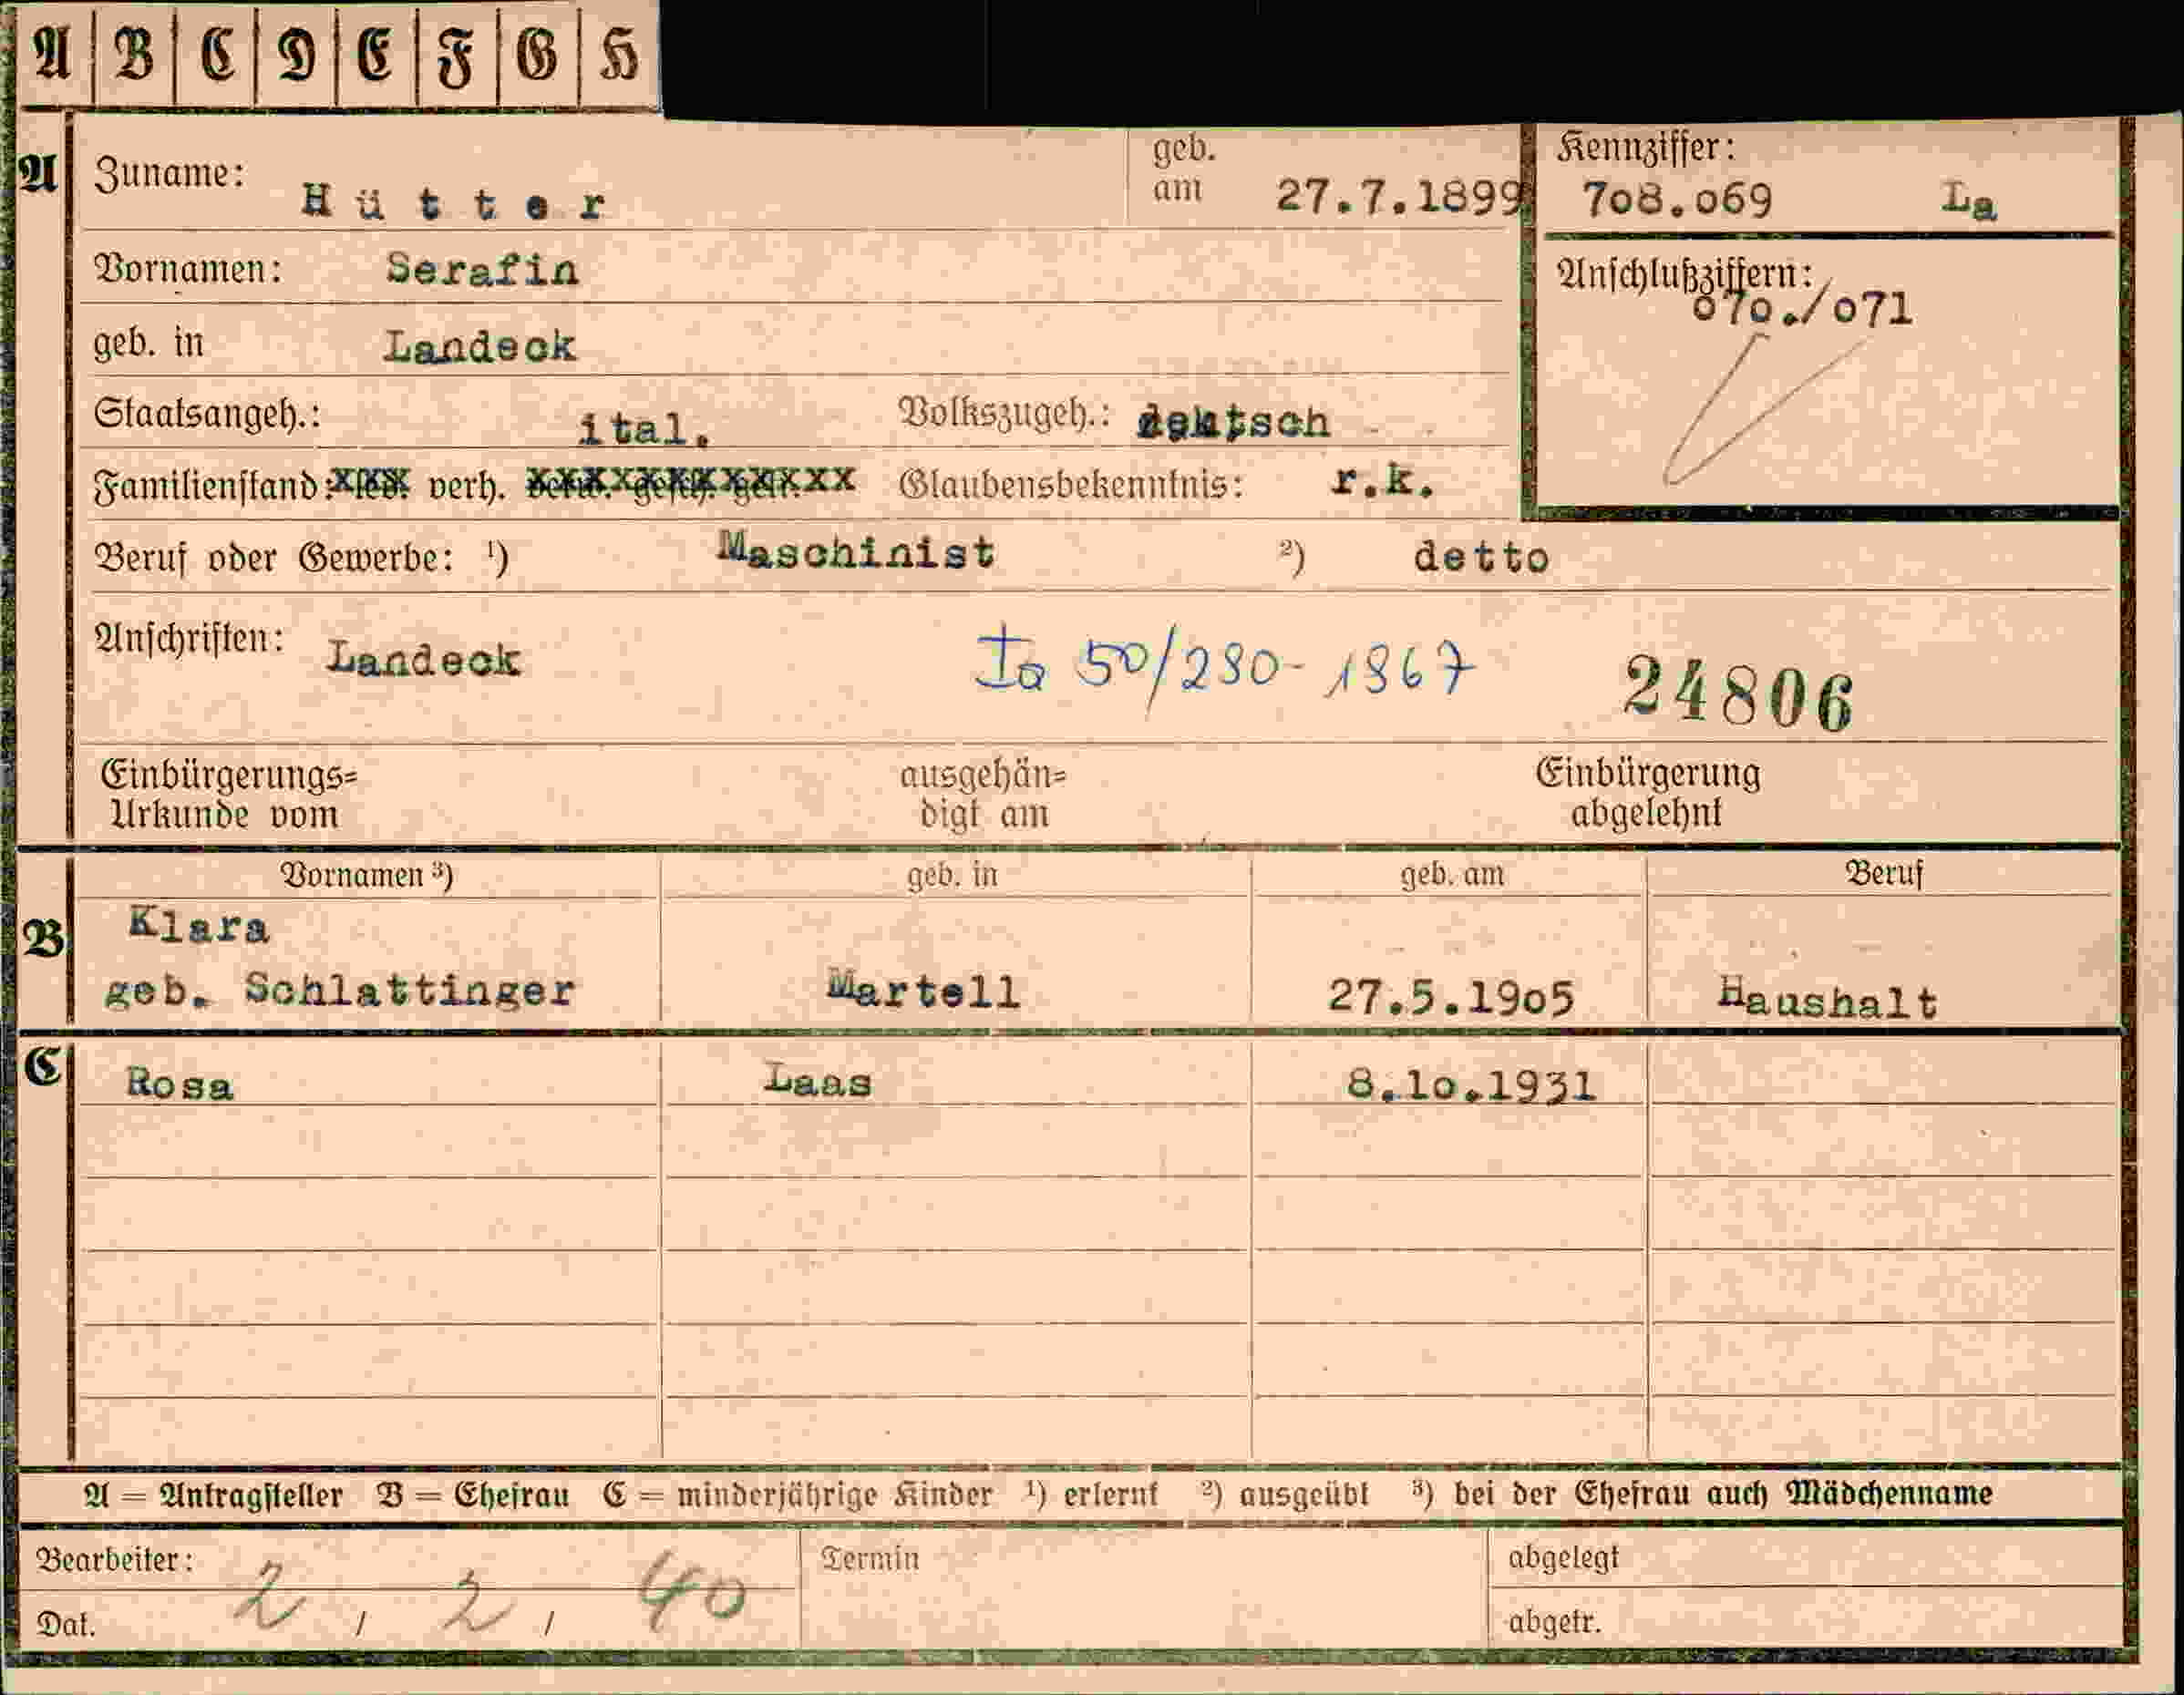 A B C D E F G H
A Zuname: Hütter geb. am 27.7.1899 Kennziffer: 708.069 La
Vornamen: Serafin Anschlußziffern: 070./071
geb. in Landeck
Staatsangeh.: ital. Volkszugeh.: deutsch
Familienstand: verh. Glaubensbekenntnis: r.k.
Beruf oder Gewerbe: ¹) Maschinist ²) detto
Anschriften: Landeck Ia 50/280-1967 24806
Einbürgerungs= ausgehän= Einbürgerung
Urkunde vom digt am abgelehnt
Vornamen ³) geb. in geb. am Beruf
B Klara
geb. Schlattinger Martell 27.5.1905 Haushalt
C Rosa Laas 8.10.1931
A = Antragsteller B = Ehefrau C = minderjährige Kinder ¹) erlernt ²) ausgeübt ³) bei der Ehefrau auch Mädchenname
Bearbeiter: Termin abgelegt
Dat. 2 / 2 / 40 abgetr.